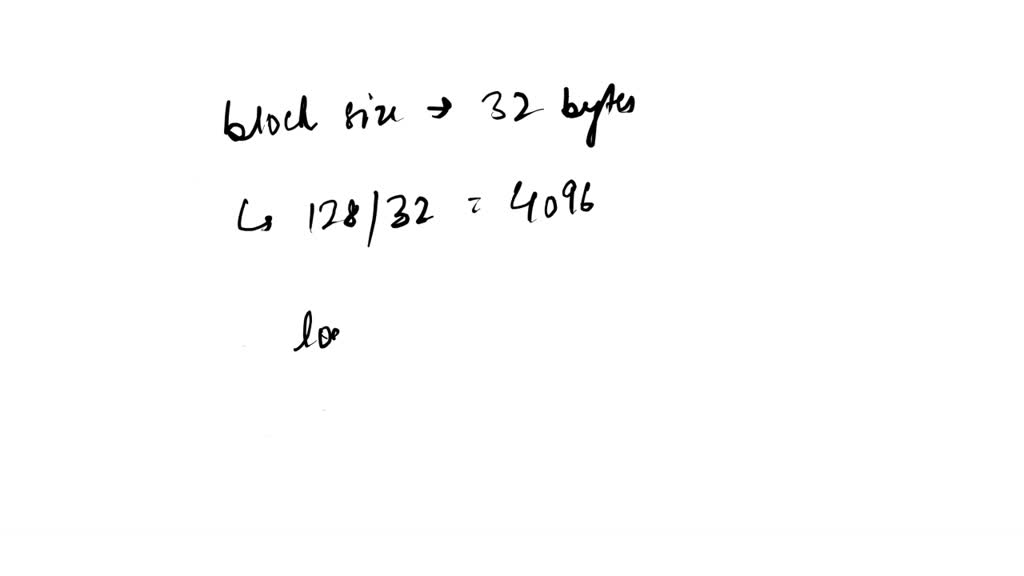 block size → 32 bytes
↳ 128/32 = 4096
lo